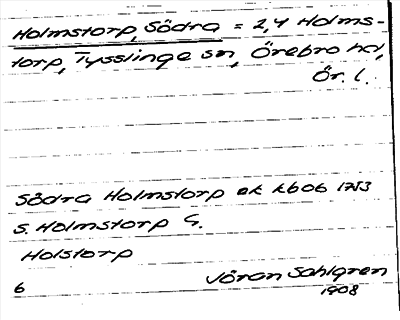 Holmstorp, Södra = 2,4 Holms-
torp, Tysslinge sn, Örebro hd,
Ör. l.
Södra Holmstorp ek kbob 1753
S. Holmstorp G.
Holstorp
6 Jöran Sahlgren
1908